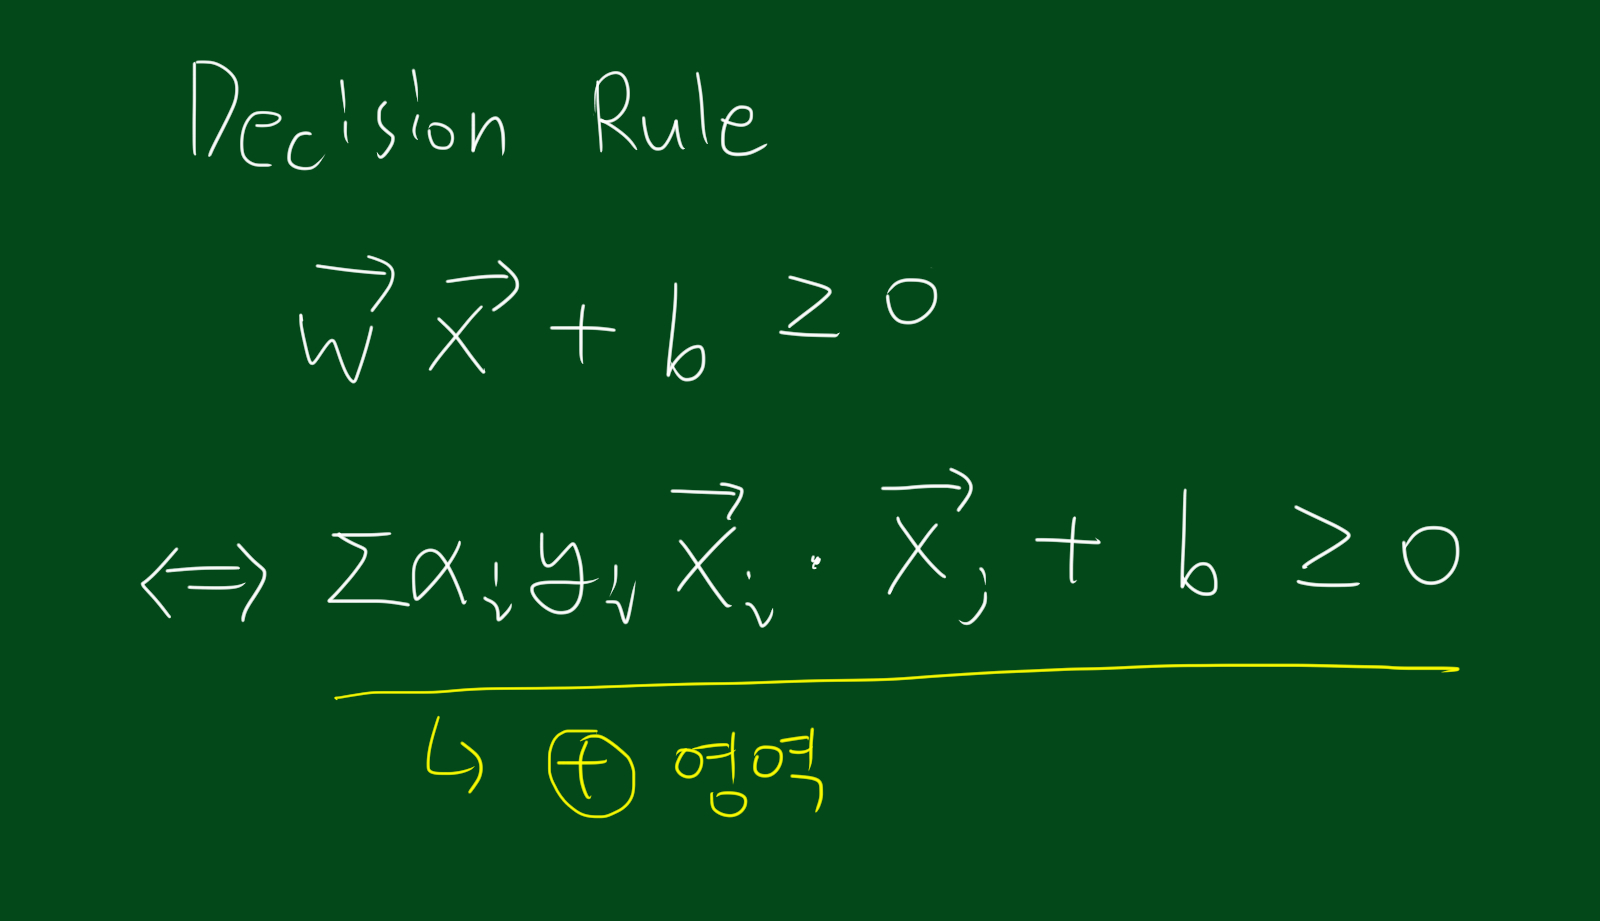 Decision Rule
$\vec{w} \vec{x} + b \geq 0$
$\Leftrightarrow \Sigma \alpha_i y_i \vec{x}_i \cdot \vec{x}_j + b \geq 0$
↳ ⊕ 영역